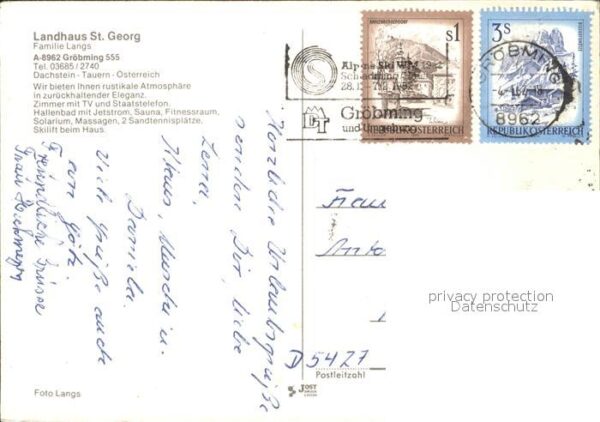 Landhaus St. Georg
Familie Langs
A-8962 Gröbming 555
Tel. 03685/2740
Dachstein - Tauern - Österreich
Wir bieten Ihnen rustikale Atmosphäre
in zurückhaltender Eleganz.
Zimmer mit TV und Staatstelefon.
Hallenbad mit Jetstrom, Sauna, Fitnessraum,
Solarium, Massagen, 2 Sandtennisplätze,
Skilift beim Haus.
Herzliche Urlaubsgrüße
senden Dir, liebe
Lena,
Klaus, u.
Daniela.
Viele Grüße auch
an Götz.
Freundliche Grüsse
Frau
Foto Langs
Alpine Ski WM 1982
Schladming
28.1. - 7.2. 1982
Gröbming
und Umgebung
S1
REPUBLIK ÖSTERREICH
3S
REPUBLIK ÖSTERREICH
GRÖBMING
8962
Frau
D 5427
Postleitzahl
JOST
privacy protection
Datenschutz